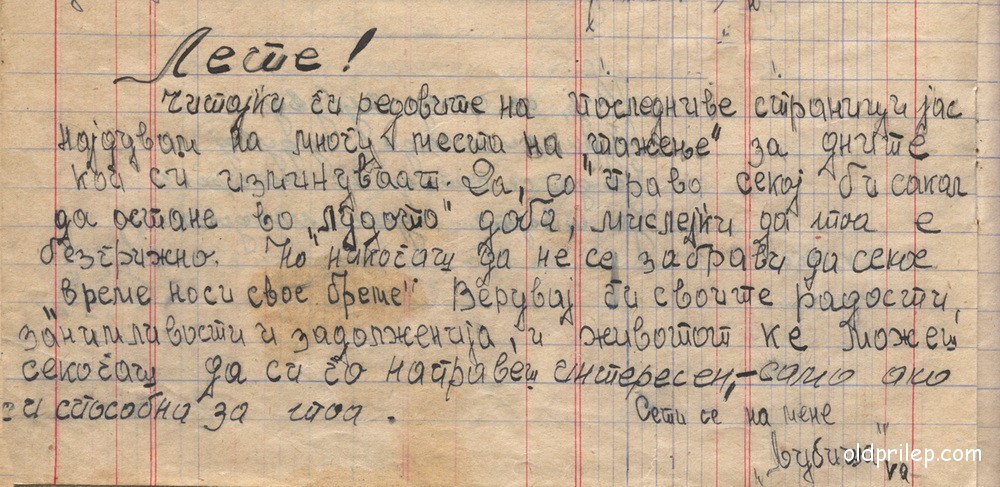 Лесте!
Читајќи ги редовите на последниве страници јас
најдувам на многу места на „тажење" за дните
кои си изминуваат. Да, со право секој би сакал
да остане во „лудото" доба, мислејќи да тоа е
безгрижно. Но никогаш да не се заборави да секое
време носи свое бреме" Верувај ги своите радости,
занимливости и задолженија, и животот ке можеш
секогаш да си го направеш интересен, – само ако
си способна за тоа.
Сети се на мене
oldprilep.com